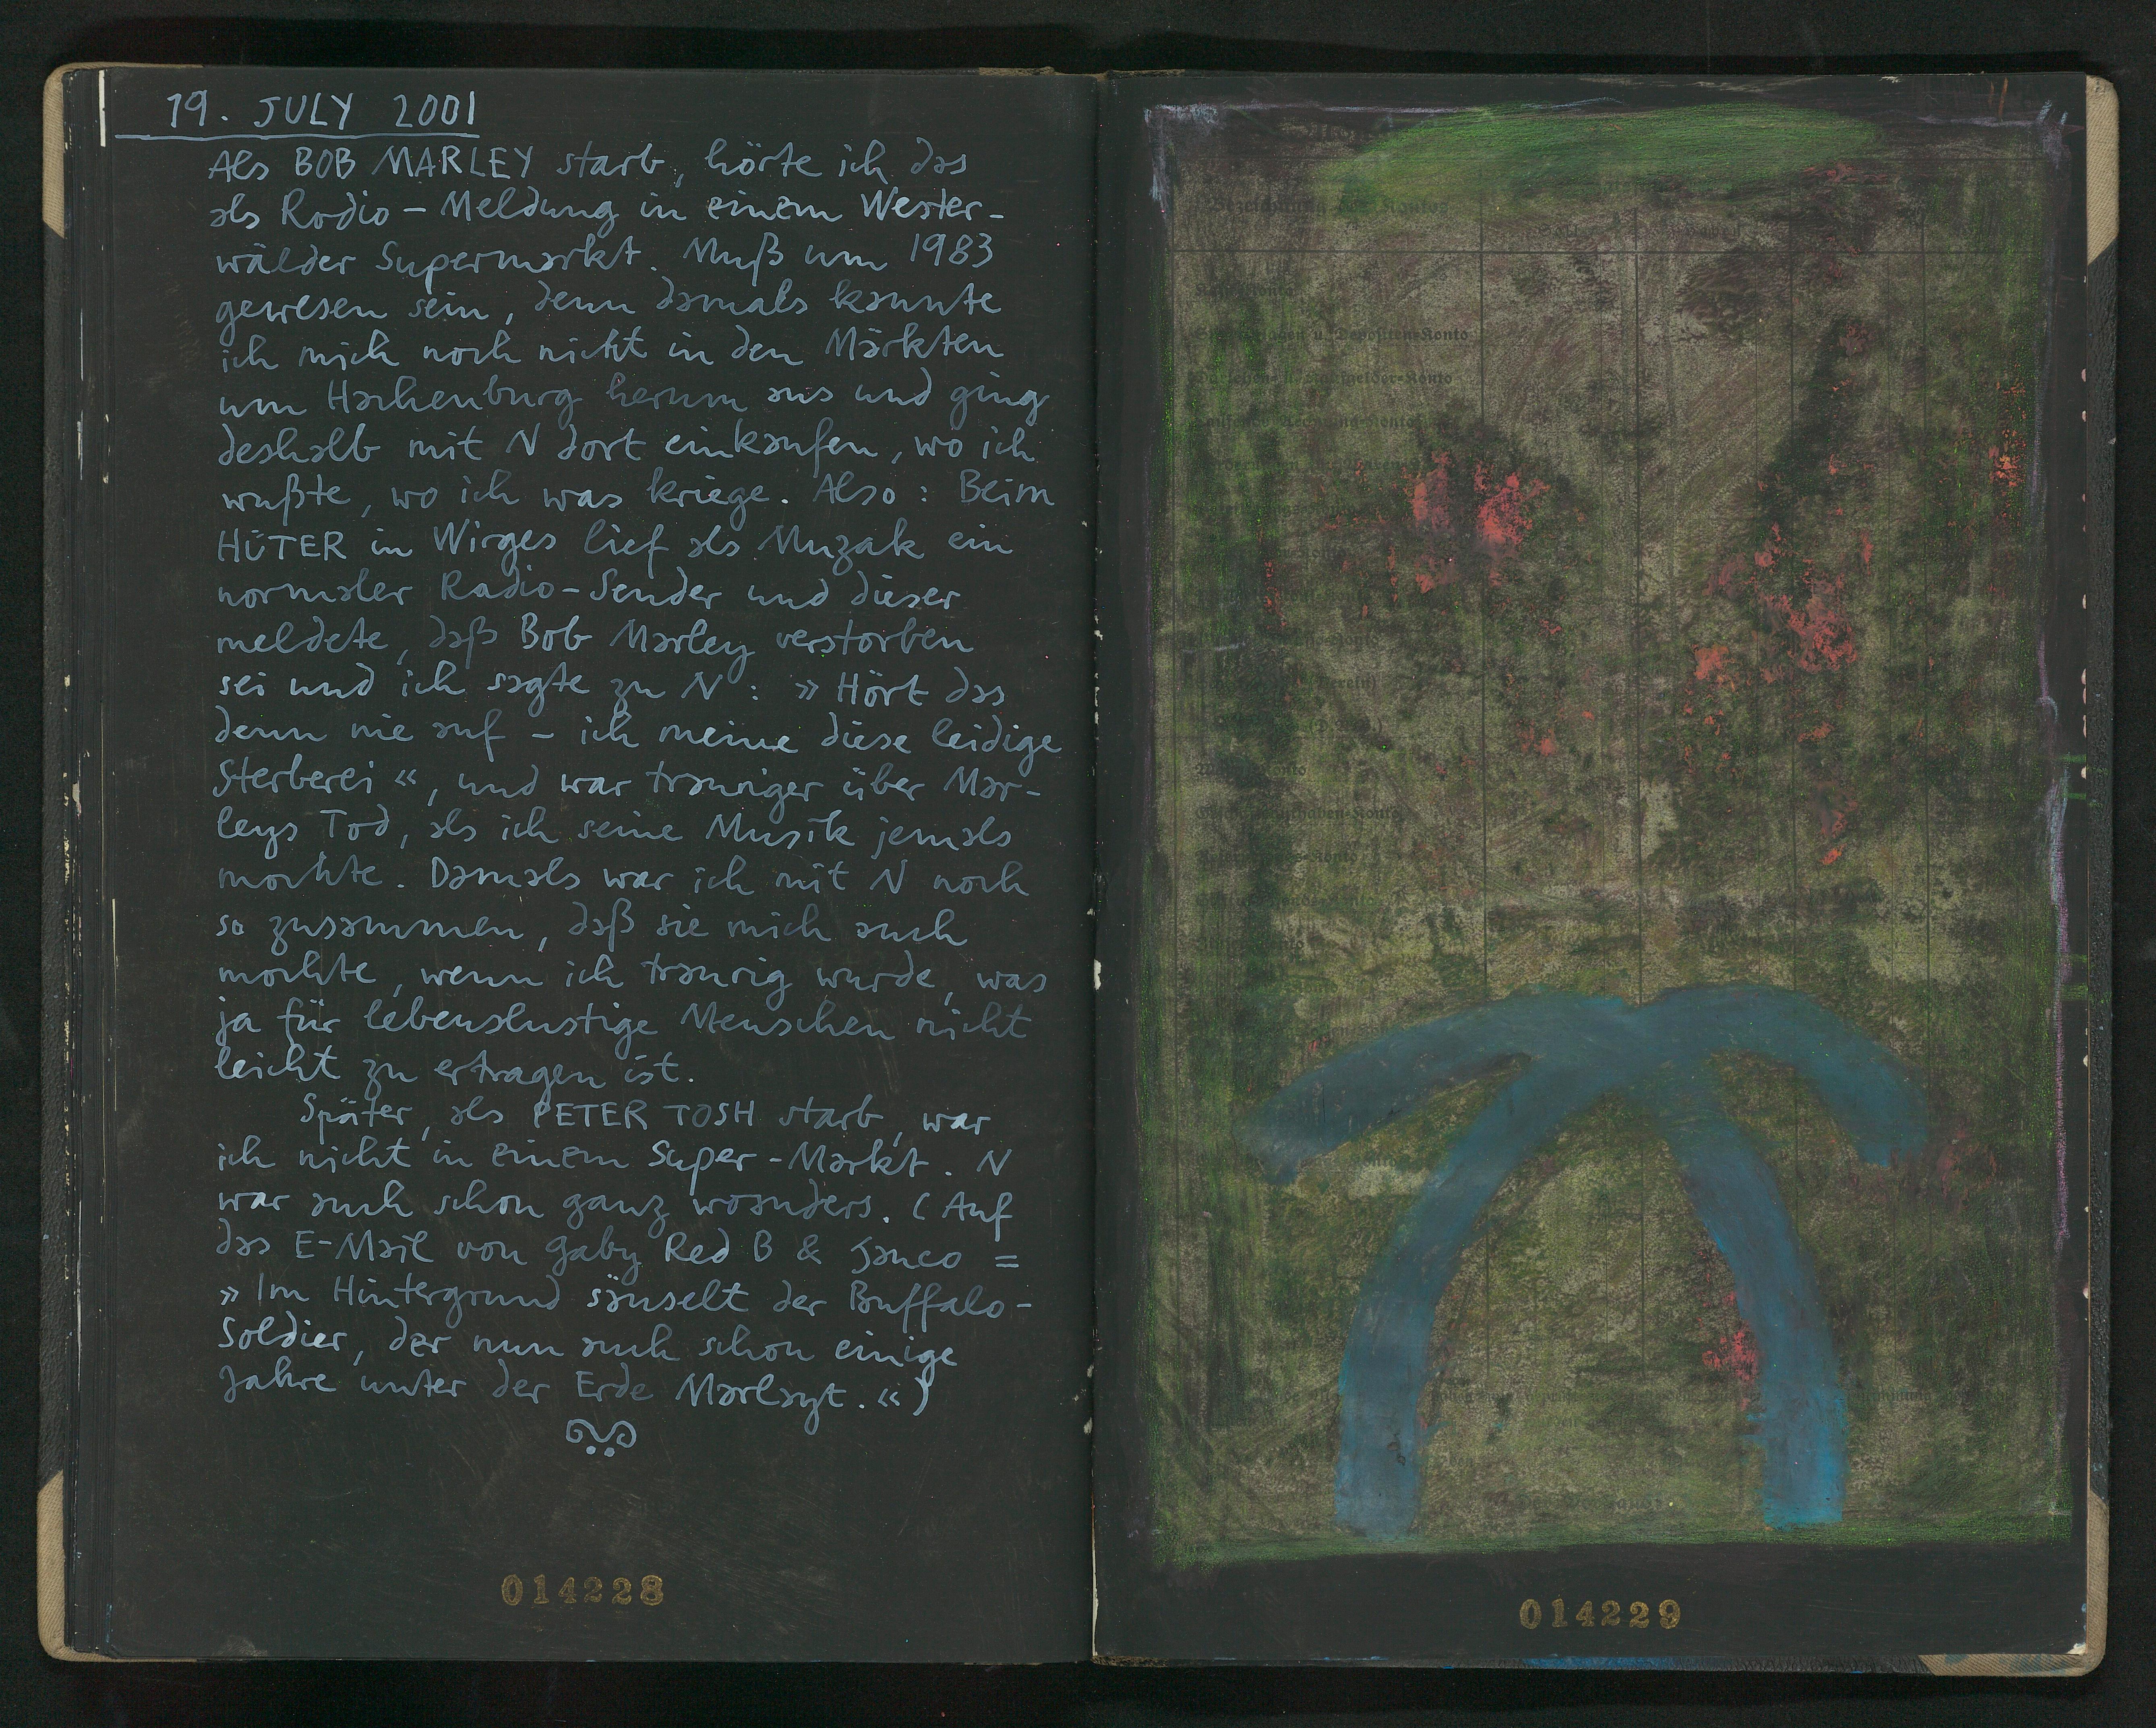 19. JULY 2001
Als BOB MARLEY starb, hörte ich das
als Radio-Meldung in einem Wester-
wälder Supermarkt. Muß um 1983
gewesen sein, denn damals kannte
ich mich noch nicht in den Märkten
um Hachenburg herum aus und ging
deshalb mit N dort einkaufen, wo ich
wußte, wo ich was kriege. Also: Beim
HÜTER in Wirges lief als Muzak ein
normaler Radio-Sender und dieser
meldete, daß Bob Marley verstorben
sei und ich sagte zu N: »Hört das
denn nie auf – ich meine diese leidige
Sterberei«, und war trauriger über Mar-
leys Tod, als ich seine Musik jemals
mochte. Damals war ich mit N noch
so zusammen, daß sie mich auch
mochte, wenn ich traurig wurde, was
ja für lebenslustige Menschen nicht
leicht zu ertragen ist.
Später, als PETER TOSH starb, war
ich nicht in einem Super-Markt. N
war auch schon ganz woanders. (Auf
das E-Mail von Gaby Red B & Janco =
»Im Hintergrund säuselt der Buffalo-
Soldier, der nun auch schon einige
Jahre unter der Erde Marlayt.«)
014228
Bezeichnung des Kontos
u. Depositen-Konto
014229